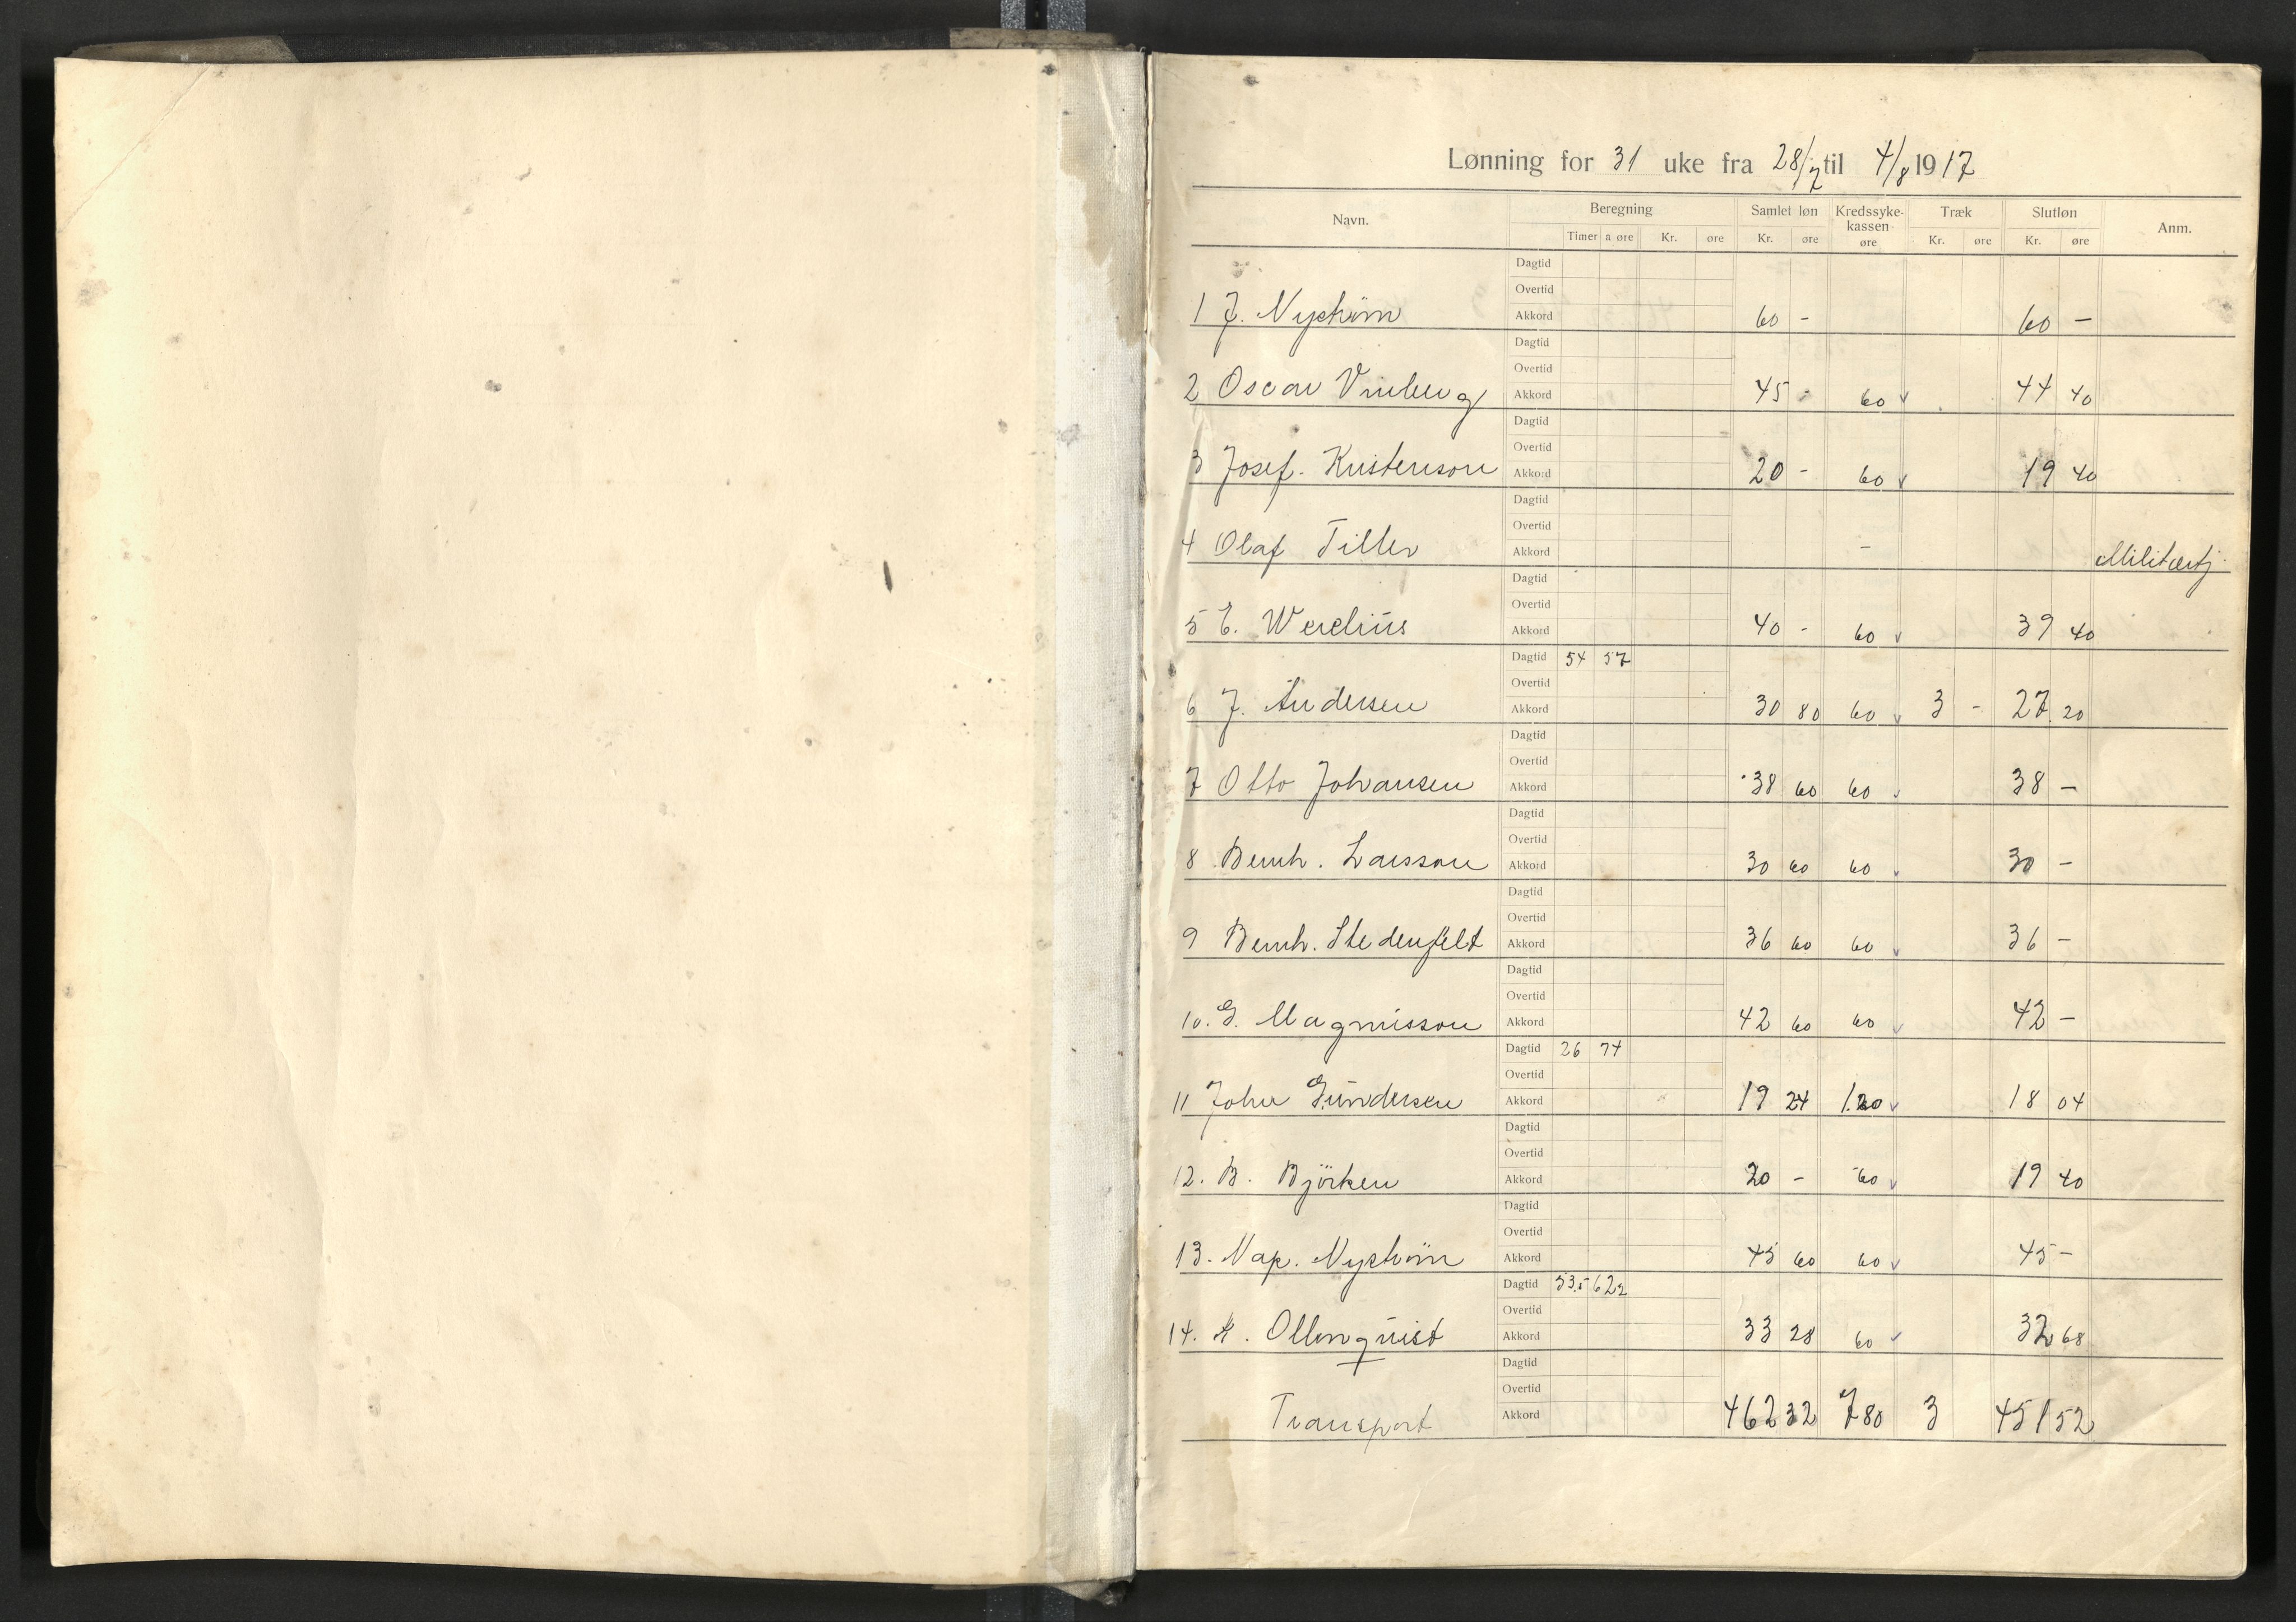 Lønning for 31 uke fra 28/7 til 4/8 1917
Navn. Beregning Samlet løn Kredssyke- Træk Slutløn Anm.
kassen
Timer a øre Kr. øre Kr. øre øre Kr. øre Kr. øre
Dagtid
Overtid
1 J. Nyström Akkord 60 - 60 -
Dagtid
Overtid
2 Oscar Vinberg Akkord 45 - 60 44 40
Dagtid
Overtid
3 Josef. Kristenson Akkord 20 - 60 19 40
Dagtid
Overtid
4 Olaf Tiller Akkord - Militærtj.
Dagtid
Overtid
5 E. Werelius Akkord 40 - 60 39 40
Dagtid 54 57
Overtid
6 J. Andersen Akkord 30 80 60 3 - 27.20
Dagtid
Overtid
7 Otto Johansen Akkord 38 60 60 38 -
Dagtid
Overtid
8 Bernh. Larsson Akkord 30 60 60 30 -
Dagtid
Overtid
9 Bernh. Stedenfelt Akkord 36 60 60 36 -
Dagtid
Overtid
10. G. Magnusson Akkord 42 60 60 42 -
Dagtid 26 74
Overtid
11 John Gundersen Akkord 19 24 1.20 18 04
Dagtid
Overtid
12. B. Björken Akkord 20 - 60 19 40
Dagtid
Overtid
13. Nap. Nyström Akkord 45 60 60 45 -
Dagtid 53.5 622
Overtid
14. K. Ollonquist Akkord 33 28 60 32 68
Dagtid
Overtid
Transport Akkord 462 32 7 80 3 451 52